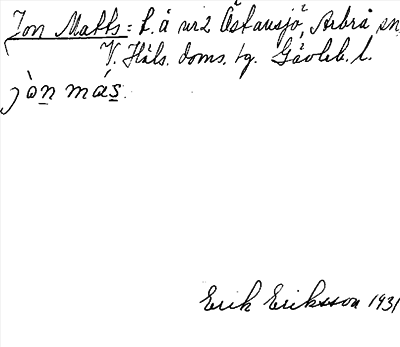 Jon Matts = t. å nr 2 Östansjö², Arbrå sn,
V. Häls. doms. tg. Gävleb. l.
jòn más.
Erik Eriksson 1931